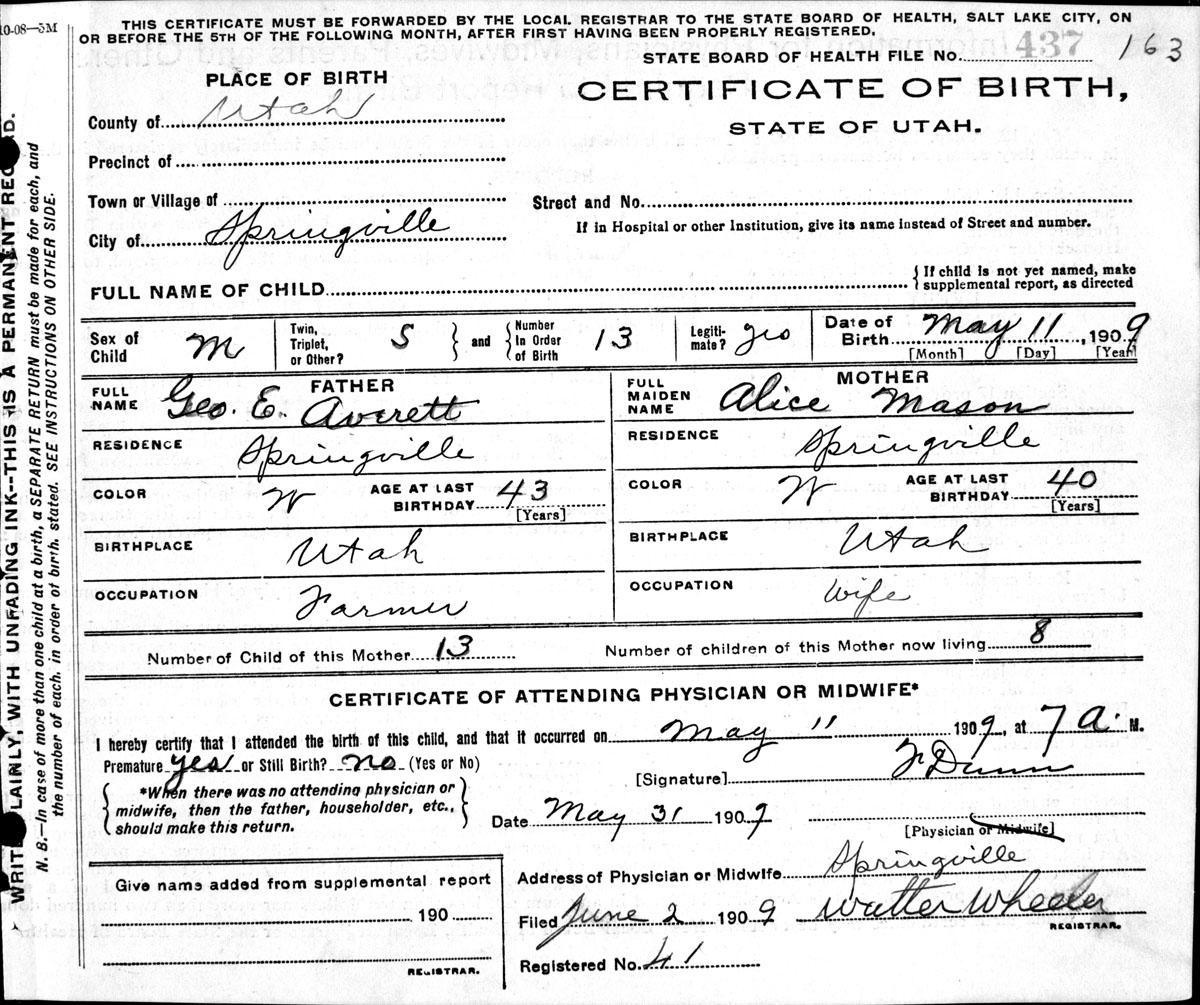 10-08—5M
THIS CERTIFICATE MUST BE FORWARDED BY THE LOCAL REGISTRAR TO THE STATE BOARD OF HEALTH, SALT LAKE CITY, ON
OR BEFORE THE 5TH OF THE FOLLOWING MONTH, AFTER FIRST HAVING BEEN PROPERLY REGISTERED.
STATE BOARD OF HEALTH FILE No. 437 163
PLACE OF BIRTH
CERTIFICATE OF BIRTH,
STATE OF UTAH.
County of Utah
Precinct of
Town or Village of
Street and No.
City of Springville
If in Hospital or other Institution, give its name instead of Street and number.
FULL NAME OF CHILD
{ If child is not yet named, make
supplemental report, as directed
Sex of Child M
Twin, Triplet, or Other? S } and { Number In Order of Birth 13
Legiti-mate? yes
Date of Birth May 11, 1909
[Month] [Day] [Year]
FATHER
FULL NAME Geo. E. Averett
RESIDENCE Springville
COLOR W AGE AT LAST BIRTHDAY 43
[Years]
BIRTHPLACE Utah
OCCUPATION Farmer
MOTHER
FULL MAIDEN NAME Alice Mason
RESIDENCE Springville
COLOR W AGE AT LAST BIRTHDAY 40
[Years]
BIRTHPLACE Utah
OCCUPATION Wife
Number of Child of this Mother 13
Number of children of this Mother now living 8
CERTIFICATE OF ATTENDING PHYSICIAN OR MIDWIFE*
I hereby certify that I attended the birth of this child, and that it occurred on May 11 1909, at 7 a. M.
Premature yes or Still Birth? no (Yes or No)
[Signature] F Dunn
{ *When there was no attending physician or
midwife, then the father, householder, etc.,
should make this return. }
Date May 31 1909
[Physician or Midwife]
Address of Physician or Midwife Springville
Give name added from supplemental report
190
REGISTRAR.
Filed June 2 1909 Walter Wheeler
REGISTRAR.
Registered No. 41
WRITE PLAINLY, WITH UNFADING INK--THIS IS A PERMANENT RECORD.
N. B.—In case of more than one child at a birth, a SEPARATE RETURN must be made for each, and
the number of each, in order of birth, stated. SEE INSTRUCTIONS ON OTHER SIDE.